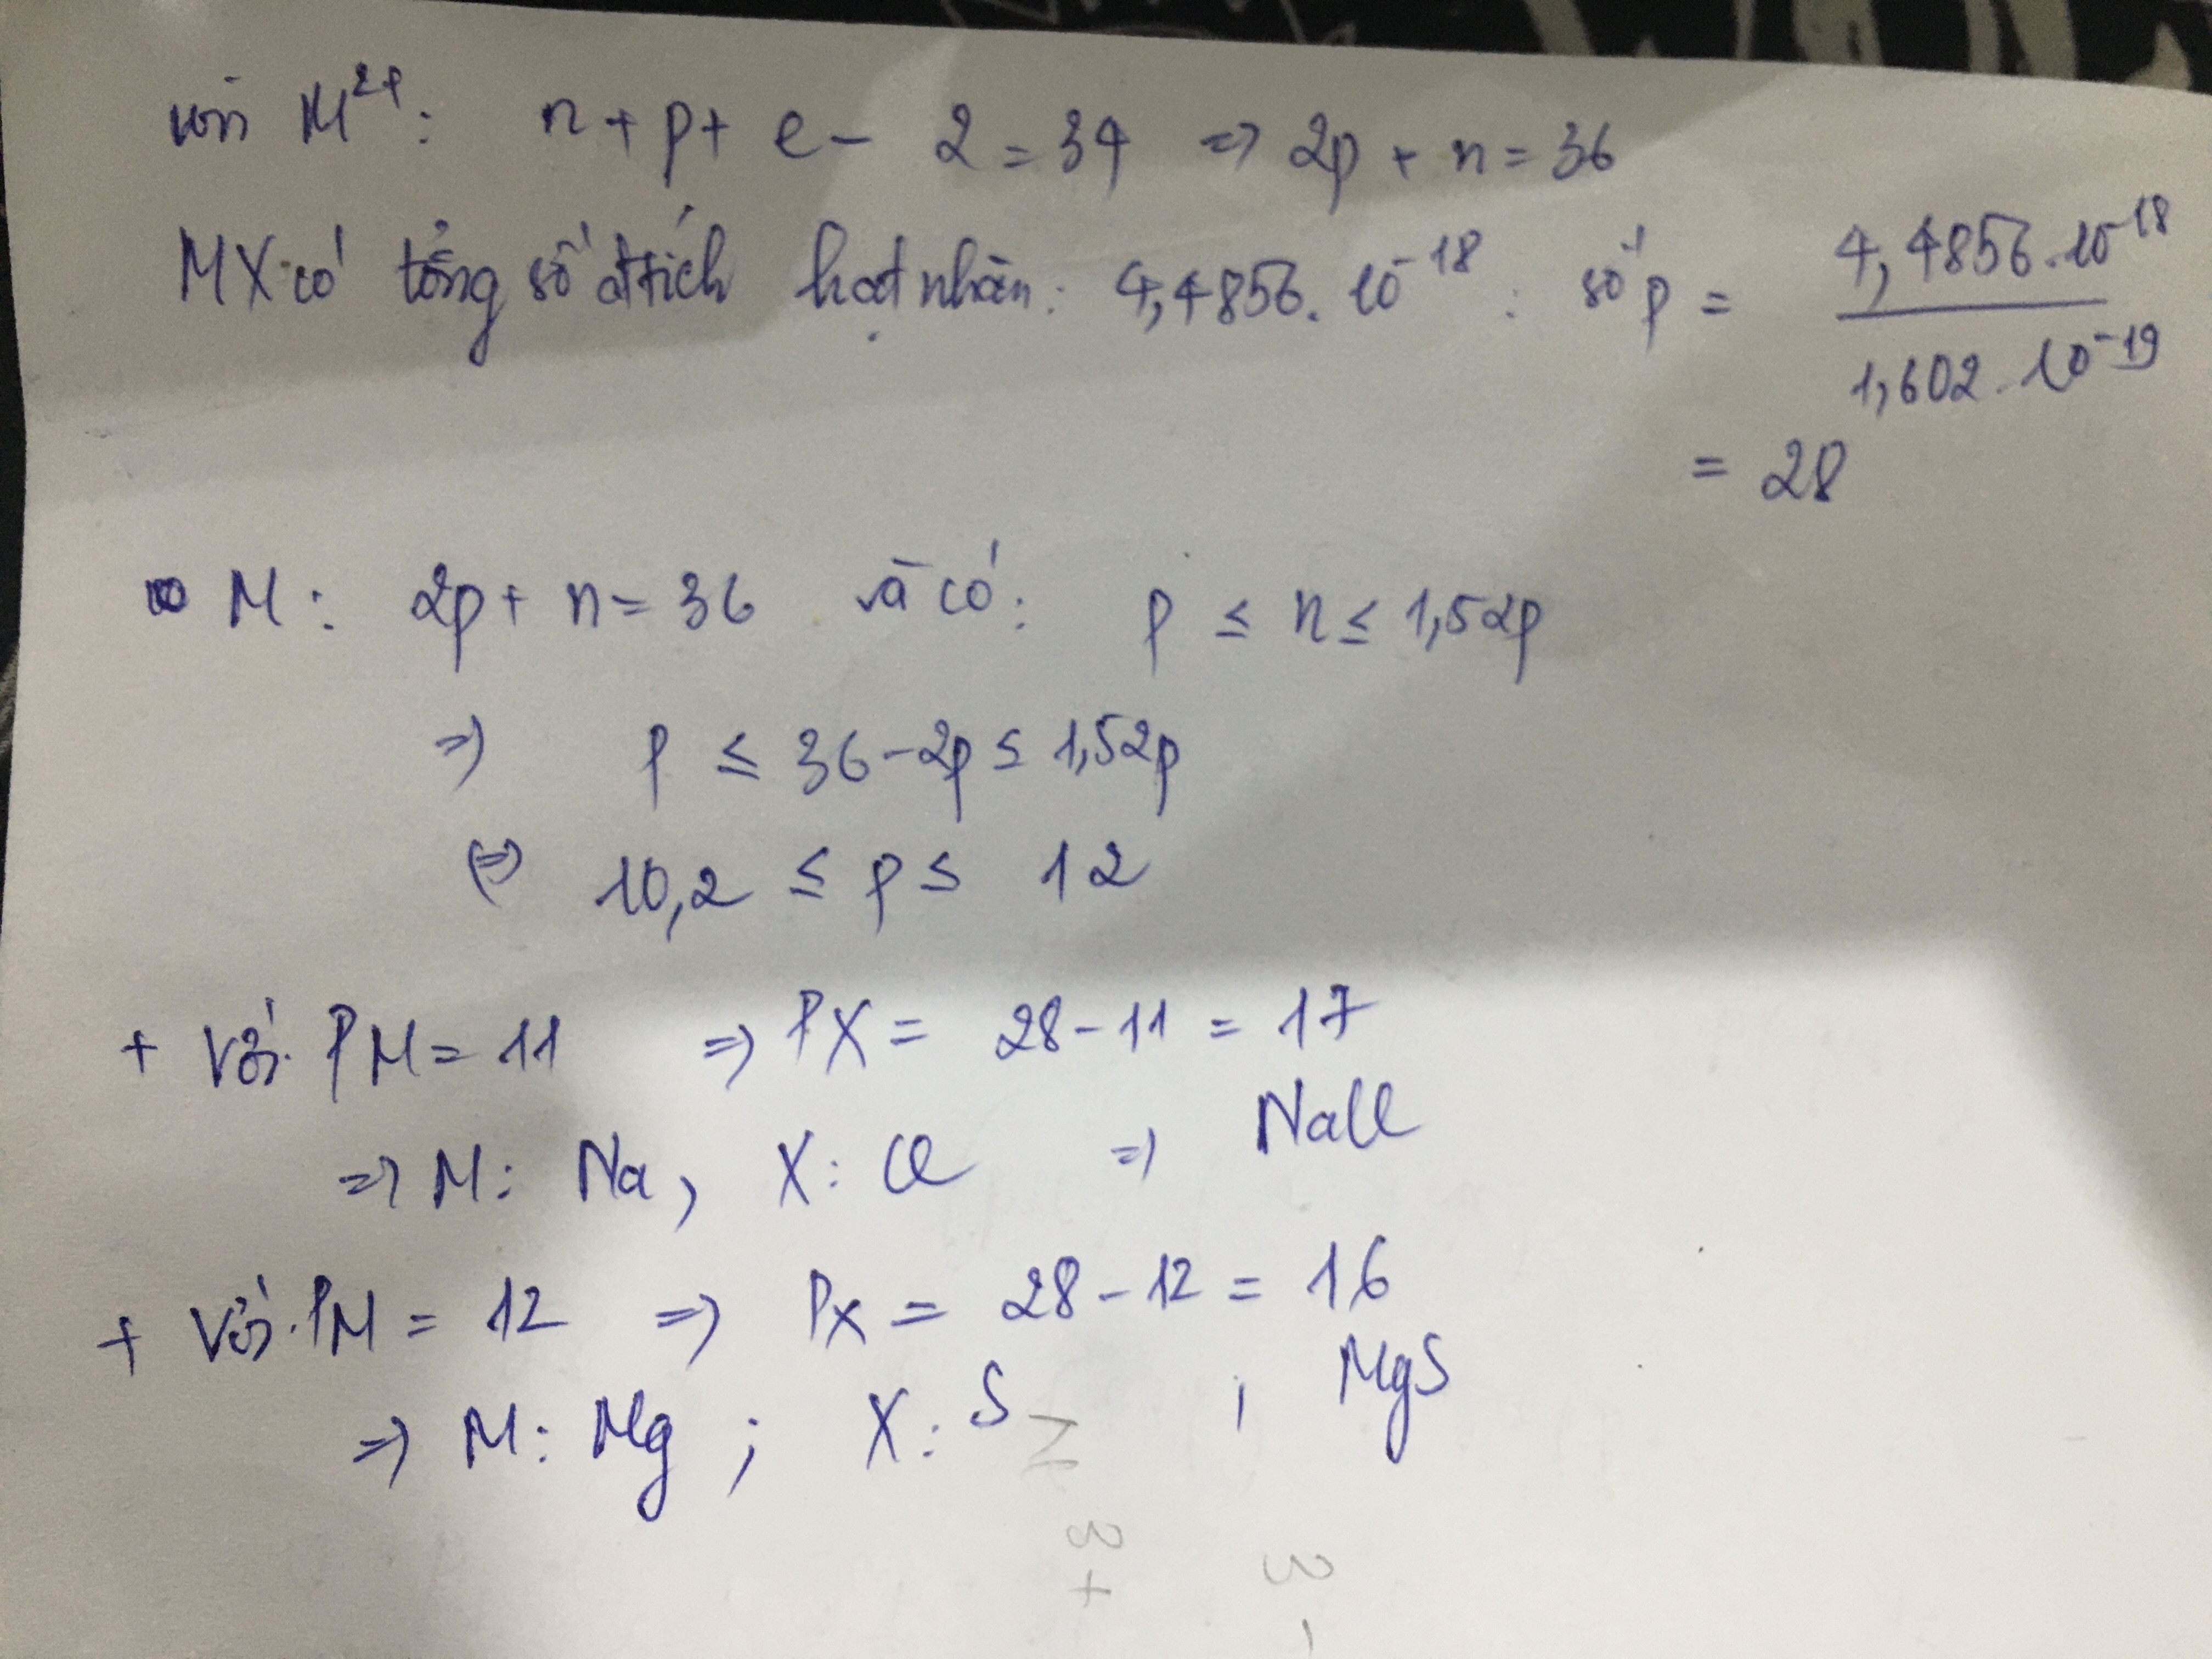 ion M²⁺: n + p + e - 2 = 34 => 2p + n = 36
MX có tổng số đtích hạt nhân: 4,4856.10⁻¹⁸ : số p = 4,4856.10⁻¹⁸ / 1,602.10⁻¹⁹
= 28
M: 2p + n = 36 và có: p ≤ n ≤ 1,52p
=> p ≤ 36-2p ≤ 1,52p
<=> 10,2 ≤ p ≤ 12
+ Với PM = 11 => PX = 28-11 = 17
=> M: Na, X: Cl => NaCl
+ Với PM = 12 => PX = 28-12 = 16
=> M: Mg ; X: S , MgS
3+
3-